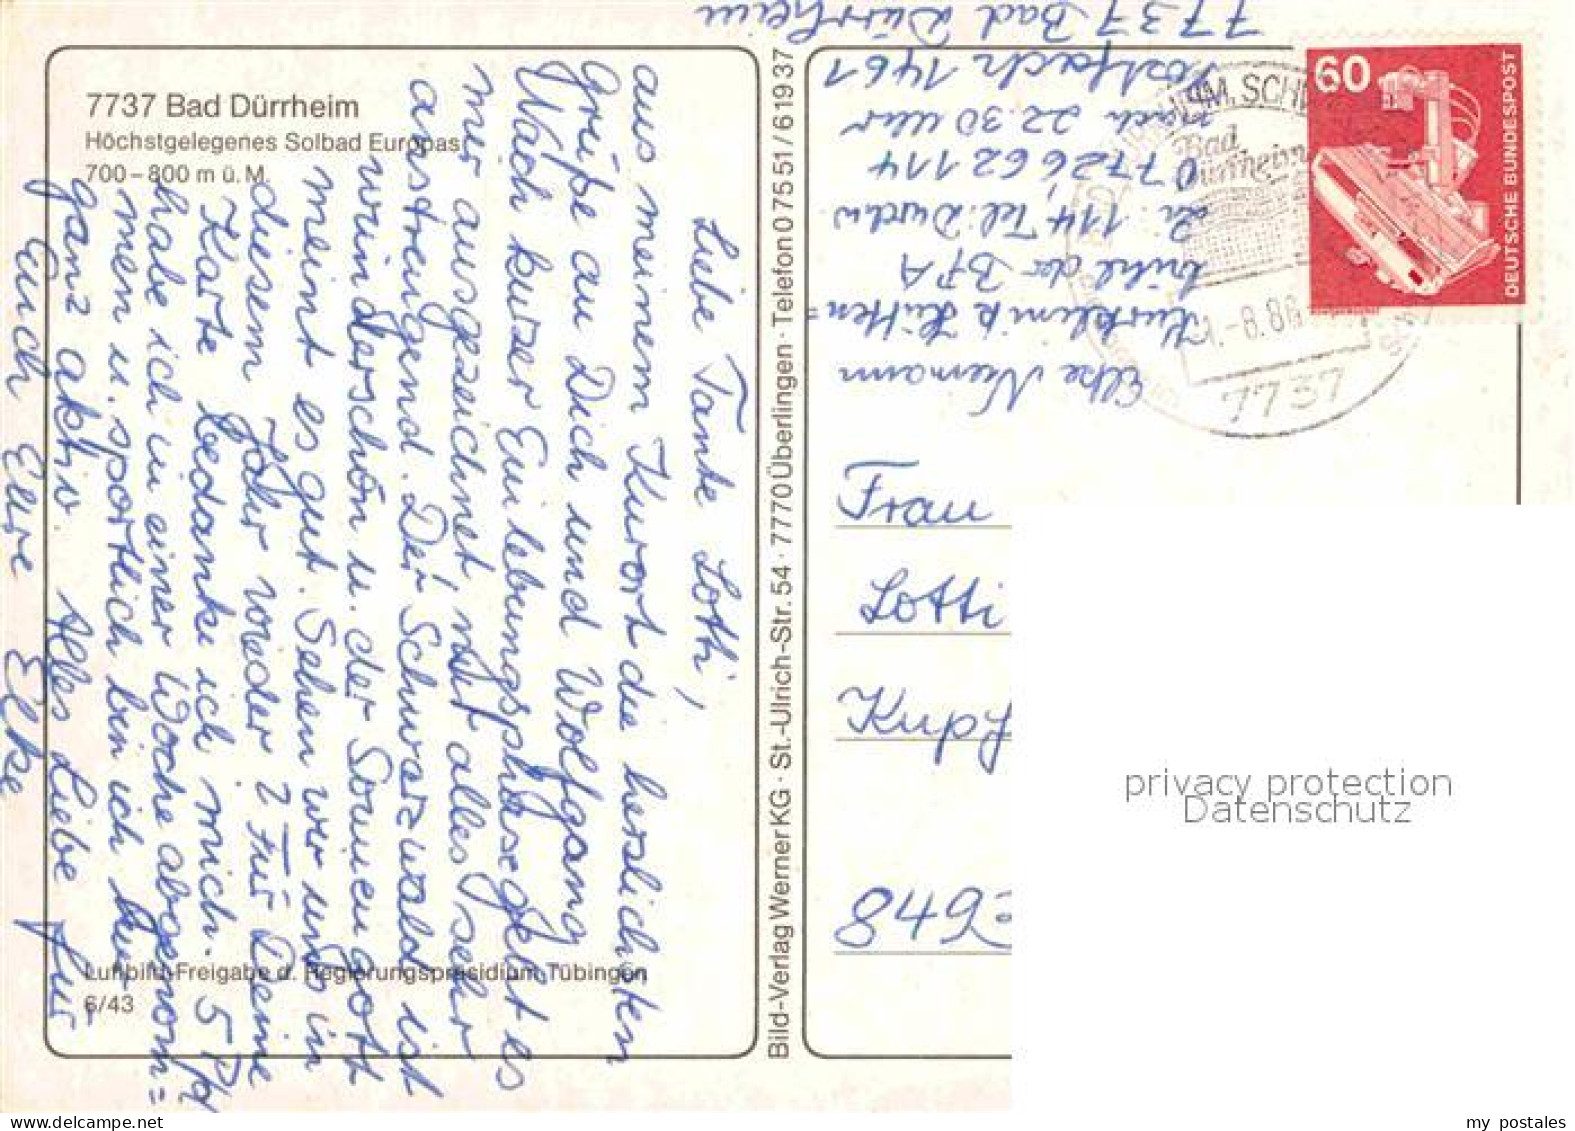 7737 Bad Dürrheim
Höchstgelegenes Solbad Europas
700 – 800 m ü. M.
Liebe Tante Lotti,
aus meinem Kurort die herzlichsten
Grüße an Dich und Wolfgang
Nach kurzer Einlebungsphase geht es
mir ausgezeichnet, nur alles sehr
anstrengend. Der Schwarzwald ist
wunderschön u. der Sonnengott
meint es gut. Sehen wir uns in
diesem Jahr wieder? Für Deine
Karte bedanke ich mich. 5 Pfd
habe ich in einer Woche abgenom=
men u. sportlich bin ich hier
ganz aktiv. Alles Liebe für
Euch Eure Elke
Luftbild-Freigabe d. Regierungspräsidium Tübingen
6/43
Bild-Verlag Werner KG · St.-Ulrich-Str. 54 · 7770 Überlingen · Telefon 0 75 51 / 6 19 37
Elke Niemann
Kurklinik Hütten=
bühl der BFA
Zi. 114, Tel: Durchw
07726, 62 114
nach 22.30 Uhr
Postfach 1461
7737 Bad Dürrheim
60
DEUTSCHE BUNDESPOST
Bad
Dürrheim
-8.86
7737
Frau
Lotti
Kupf
849
privacy protection
Datenschutz
my postales